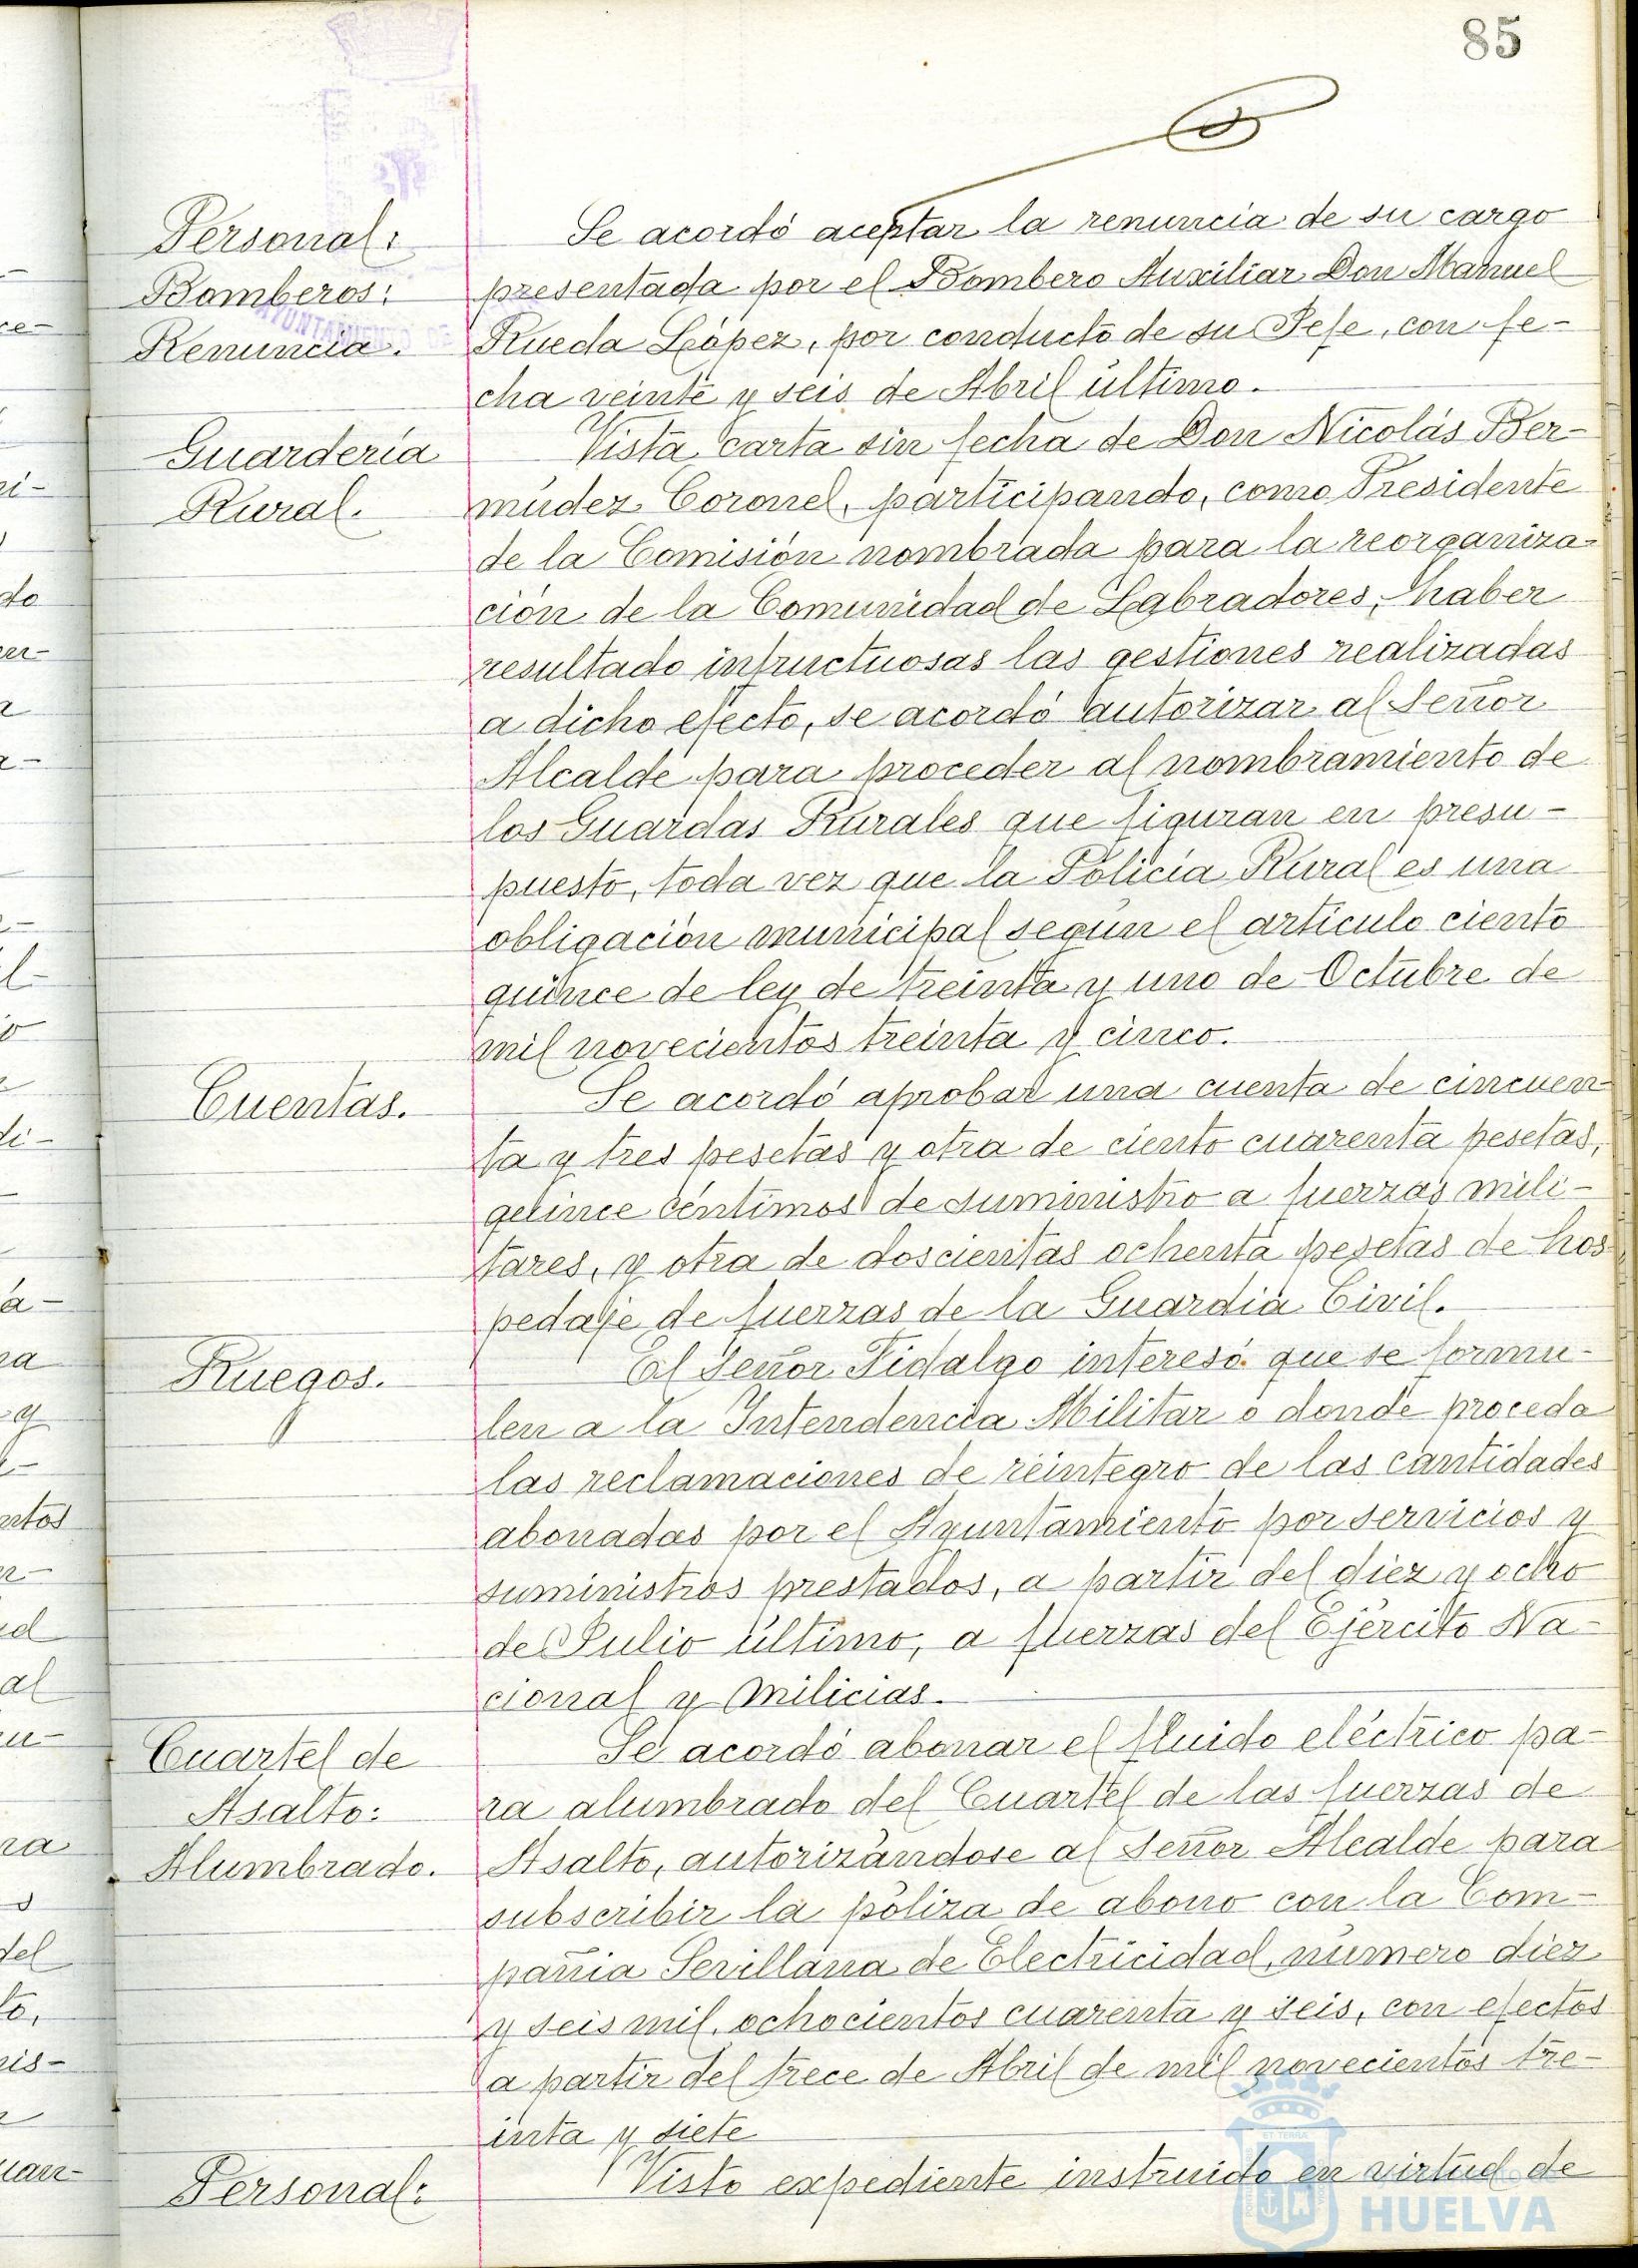 85
Personal:
Bomberos:
Renuncia.
Se acordó aceptar la renuncia de su cargo
presentada por el Bombero Auxiliar Don Manuel
Rueda López, por conducto de su Jefe, con fe-
cha veinte y seis de Abril último.
Guardería
Rural.
Vista carta sin fecha de Don Nicolás Ber-
múdez Coronel, participando, como Presidente
de la Comisión nombrada para la reorganiza-
ción de la Comunidad de Labradores, haber
resultado infructuosas las gestiones realizadas
a dicho efecto, se acordó autorizar al Señor
Alcalde para proceder al nombramiento de
los Guardas Rurales que figuran en presu-
puesto, toda vez que la Policía Rural es una
obligación municipal según el artículo ciento
quince de ley de treinta y uno de Octubre de
mil novecientos treinta y cinco.
Cuentas.
Se acordó aprobar una cuenta de cincuen-
ta y tres pesetas y otra de ciento cuarenta pesetas,
quince céntimos de suministro a fuerzas mili-
tares, y otra de doscientas ochenta pesetas de hos-
pedaje de fuerzas de la Guardia Civil.
Ruegos.
El Señor Fidalgo interesó que se formu-
len a la Intendencia Militar o donde proceda
las reclamaciones de reintegro de las cantidades
abonadas por el Ayuntamiento por servicios y
suministros prestados, a partir del diez y ocho
de Julio último, a fuerzas del Ejército Na-
cional y Milicias.
Cuartel de
Asalto:
Alumbrado.
Se acordó abonar el fluido eléctrico pa-
ra alumbrado del Cuartel de las fuerzas de
Asalto, autorizándose al Señor Alcalde para
subscribir la póliza de abono con la Com-
pañia Sevillana de Electricidad, número diez
y seis mil, ochocientos cuarenta y seis, con efectos
a partir del trece de Abril de mil novecientos tre-
inta y siete
Personal:
Visto expediente instruido en virtud de
HUELVA